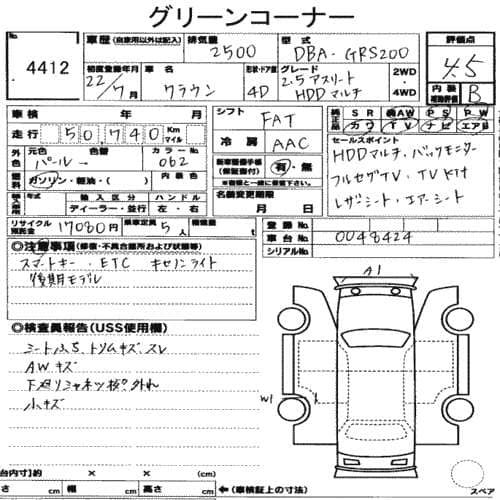 グリーンコーナー
No. 4412
車歴(自家用以外は記入) 排気量 2500 型式 DBA-GRS200 評価点 4.5
初度登録年月 22/7月 車名 クラウン 形状・ドア数 4D グレード 2.5アスリート HDDマルチ 2WD・4WD 内装補助評価 B
車検 年 月 シフト FAT 純正装備品 SR AW PS PW
走行 50,740 Km マイル 冷房 AAC カワ TV ナビ エアB
外色 元色 パール→ 色替 カラーNo. 062 新車整備手帳(保証書付) 有・無 セールスポイント
HDDマルチ・バックモニター
燃料 ガソリン・軽油・( ) 内装色 ※登録書と一緒に後送してください フルセグTV・TVキット
輸入区分 ハンドル 名義変更期限 レザーシート・エアーシート
ディーラー・並行 左・右 月 日
リサイクル預託金 17080円 乗車定員 5人 積載量 登録番号
車台No. 0048424
シリアルNo.
◎注意事項(修復・不具合箇所および状態等)
スマートキー ETC キセノンライト
後期モデル
A1
◎検査員報告(USS使用欄)
シートよごれ、トリムキズ、スレ
AWキズ
小キズ
W1
台内寸法)約 × × (cm)
長さ cm 幅 cm 高さ cm ←(車検証上の寸法) スペア